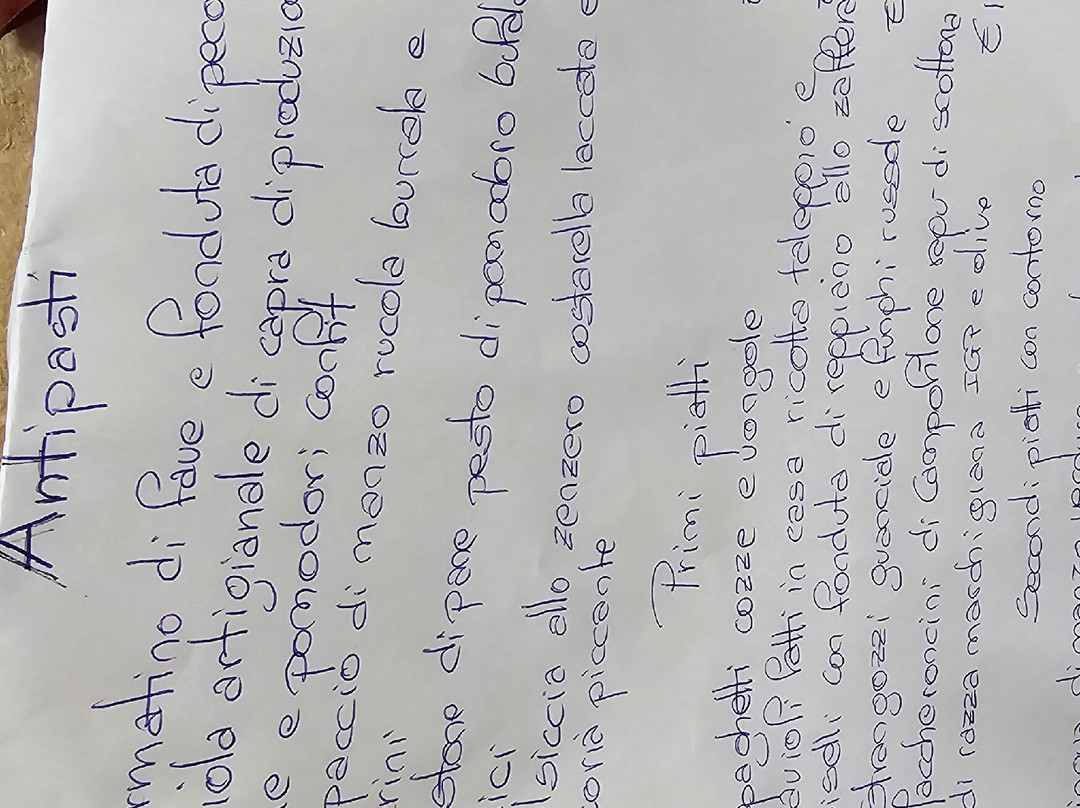 Antipasti
rmatino di fave e fonduta di peco
iola artigianale di capra di produzio
e e pomodori confit
paccio di manzo rucola burrata e
rini
stone di pane pesto di pomodoro bufala
ici
lsiccia allo zenzero costarella laccata e
coria piccante
Primi piatti
paghetti cozze e vongole
avioli fatti in casa ricotta taleggio e
iselli con fonduta di reggiano allo zaffera
strangozzi guanciale e funghi russade €
accheroncini di Campofilone ragu di scottona
di razza marchigiana IGP e olive €1
Secondi piatti con contorno
di manzo